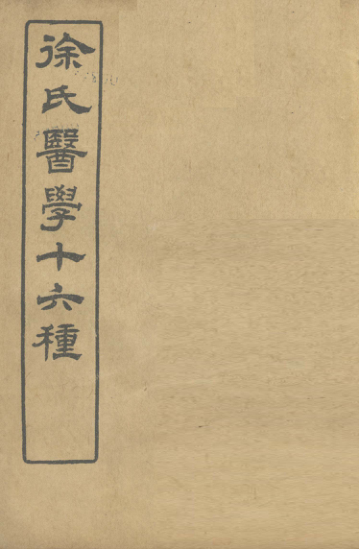 徐氏醫學十六種